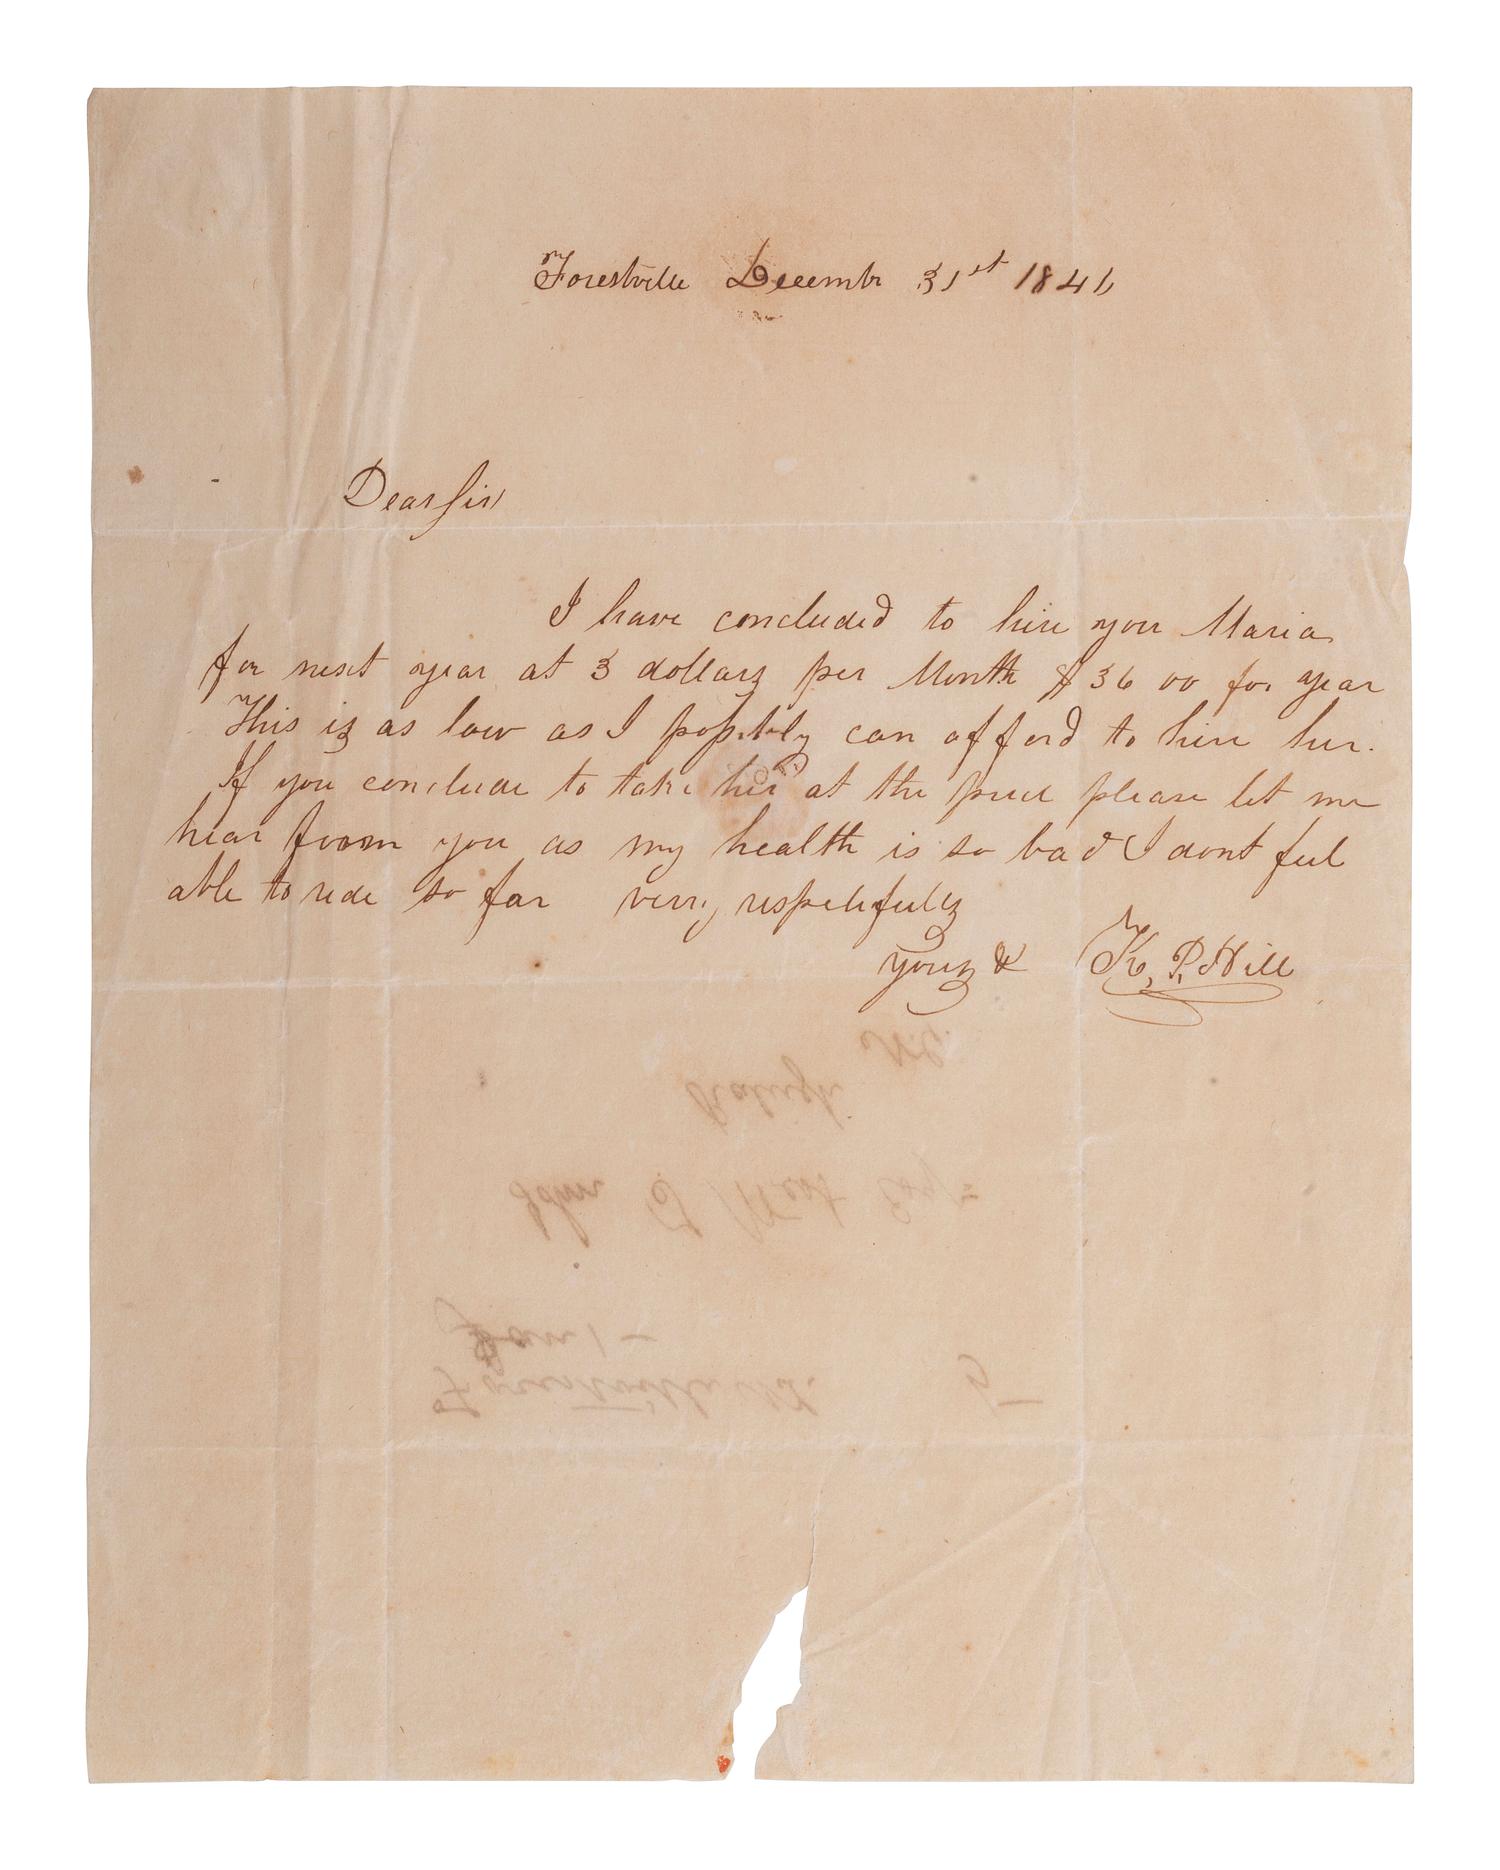 Forestville Decembr 31st 1846
Dear Sir
I have concluded to hire you Maria
for next year at 3 dollars per Month $36 00 for year
This is as low as I possibly can afford to hire her.
If you conclude to take her at the price please let me
hear from you as my health is so bad I dont feel
able to ride so far very respectfully
yours &c K. P. Hill
Raleigh N.C.
John S West Esqr
Jan 1 —
Forestville N.C. 5